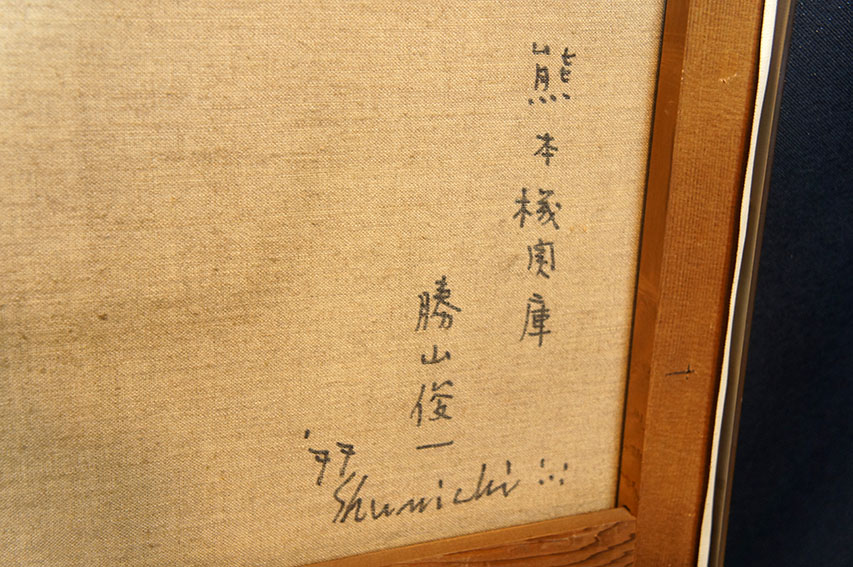 熊本機関庫
勝山俊一
'77
Shunichi